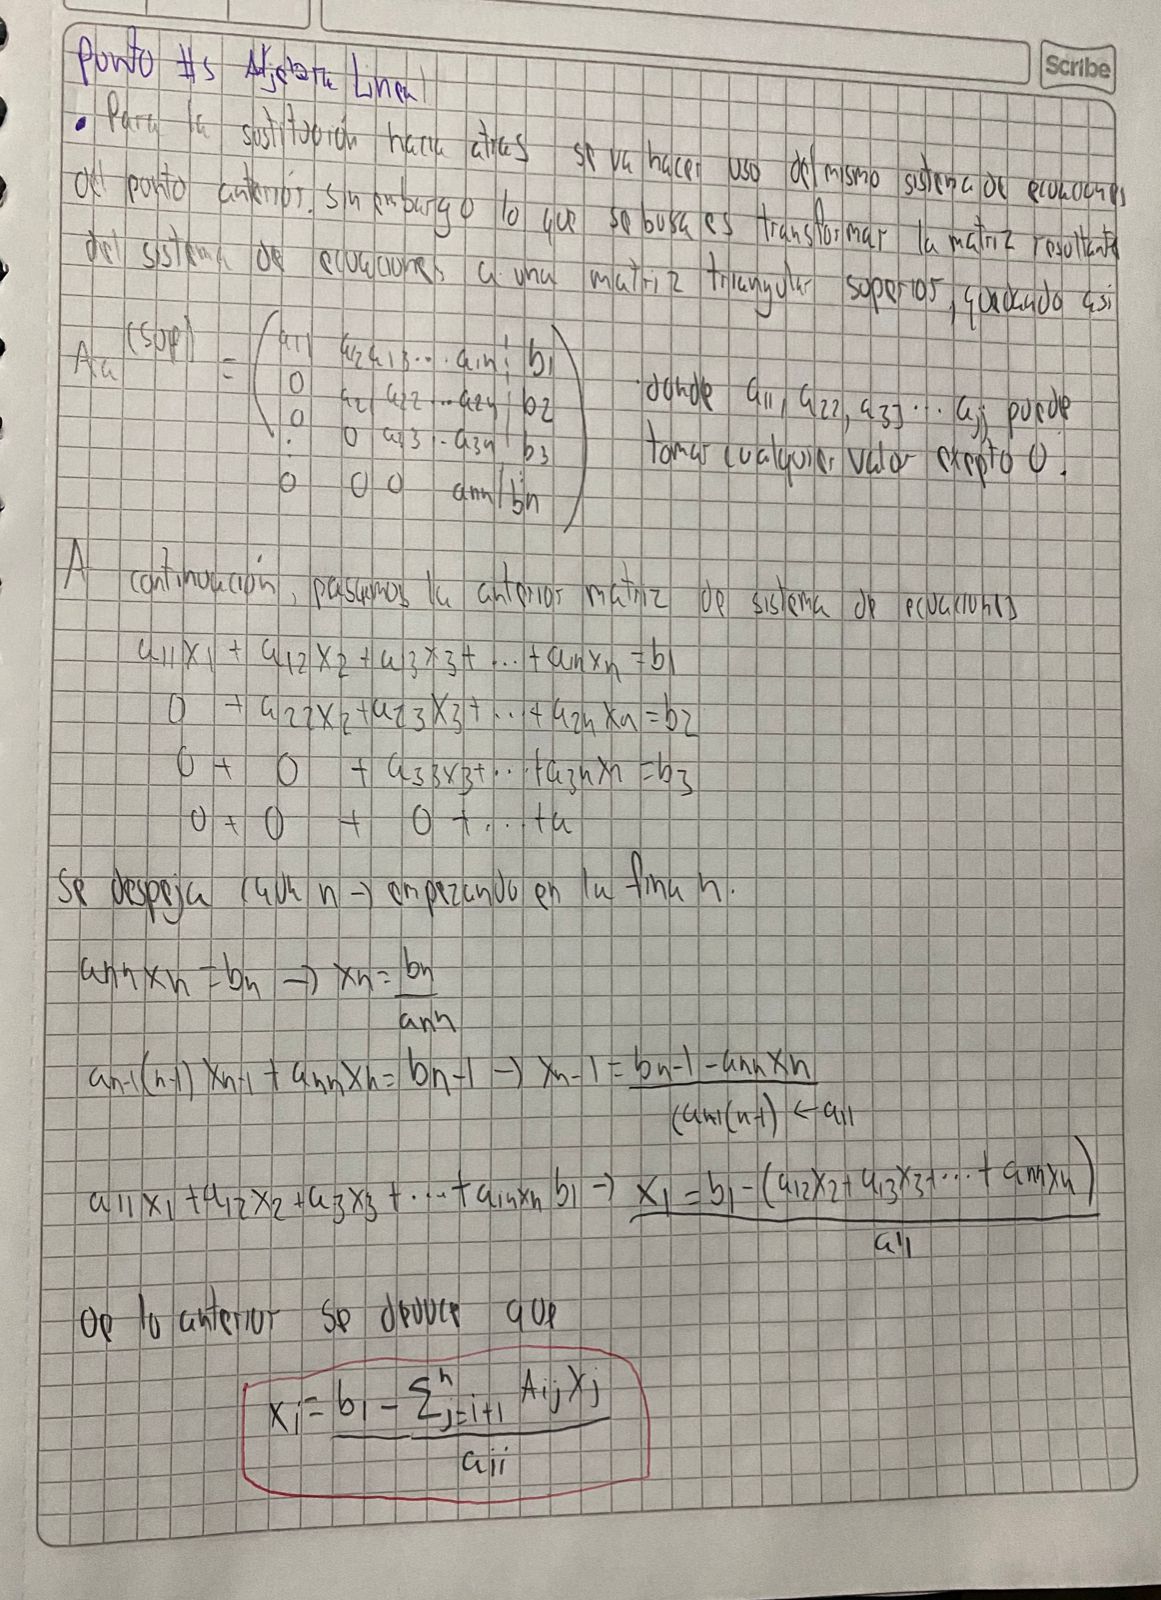 Scribe
Punto #5 Algebra Lineal
• Para la sustitución hacia atras se va hacer uso del mismo sistema de ecuaciones
del punto anterior, sin embargo lo que se busca es transformar la matriz resultante
del sistema de ecuaciones a una matriz triangular superior, quedando asi
Aa^(sup) = ( a11 a12 a13 ... a1n ¦ b1
0 a21 a22 ... a2n ¦ b2
0 0 a23 .. a3n ¦ b3
⋮
0 0 0 ann | bn )
donde a11, a22, a33 ... ajj puede
tomar cualquier valor exepto 0.
A continuación, pasamos la anterior matriz de sistema de ecuaciones
a11x1 + a12x2 + a13x3 + ... + a1nxn = b1
0 + a22x2 + a23x3 + ... + a2nxn = b2
0 + 0 + a33x3 + ... + a3nxn = b3
0 + 0 + 0 + ... + a
Se despeja cada n → empezando en la fina n.
annxn = bn → xn = bn / ann
an-1(n-1) xn-1 + annxn = bn-1 → xn-1 = bn-1 - annxn / (an-1(n-1) ← a11
a11x1 + a12x2 + a13x3 + ... + a1nxn b1 → x1 = b1 - (a12x2 + a13x3 + ... + annxn) / a11
De lo anterior se deduce que
xi = bi - Σ^n j=i+1 Aij xj / aii